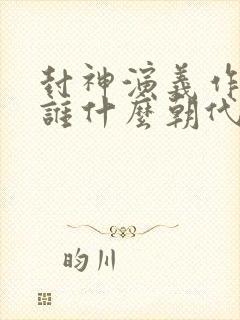 封神演義 作
誰什麼朝代
昀川